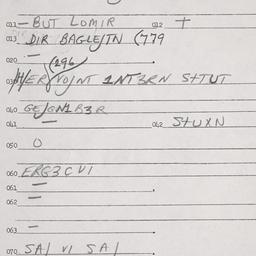 011 — BUT LOMIR 012 +
013 DIR BAGLE/TN (779
020 — (296
03 VO/NT 1NT3RN S+TUT
040 GE/GN1B3R
041 — 042 S+UXN
050 O
060 ERG3CV1
061 —
062 —
063 —
070 SA/ VI SA/